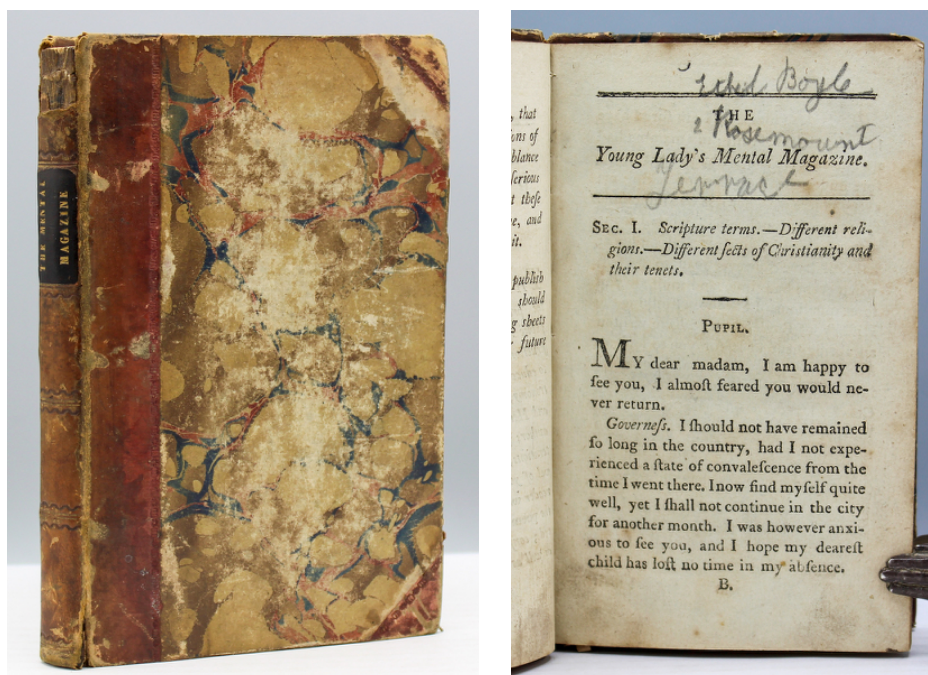 THE MENTAL
MAGAZINE
that
ſerious
theſe
and
it.
publiſh
ſhould
sheets
future
Ethel Boyle
THE
2 Rosemount
Young Lady's Mental Magazine.
Terrace
SEC. I. Scripture terms.—Different reli-
gions.—Different ſects of Christianity and
their tenets.
PUPIL.
MY dear madam, I am happy to
ſee you, I almoſt feared you would ne-
ver return.
Governeſs. I ſhould not have remained
ſo long in the country, had I not expe-
rienced a ſtate of convaleſcence from the
time I went there. I now find myſelf quite
well, yet I ſhall not continue in the city
for another month. I was however anxi-
ous to ſee you, and I hope my deareſt
child has loſt no time in my abſence.
B.